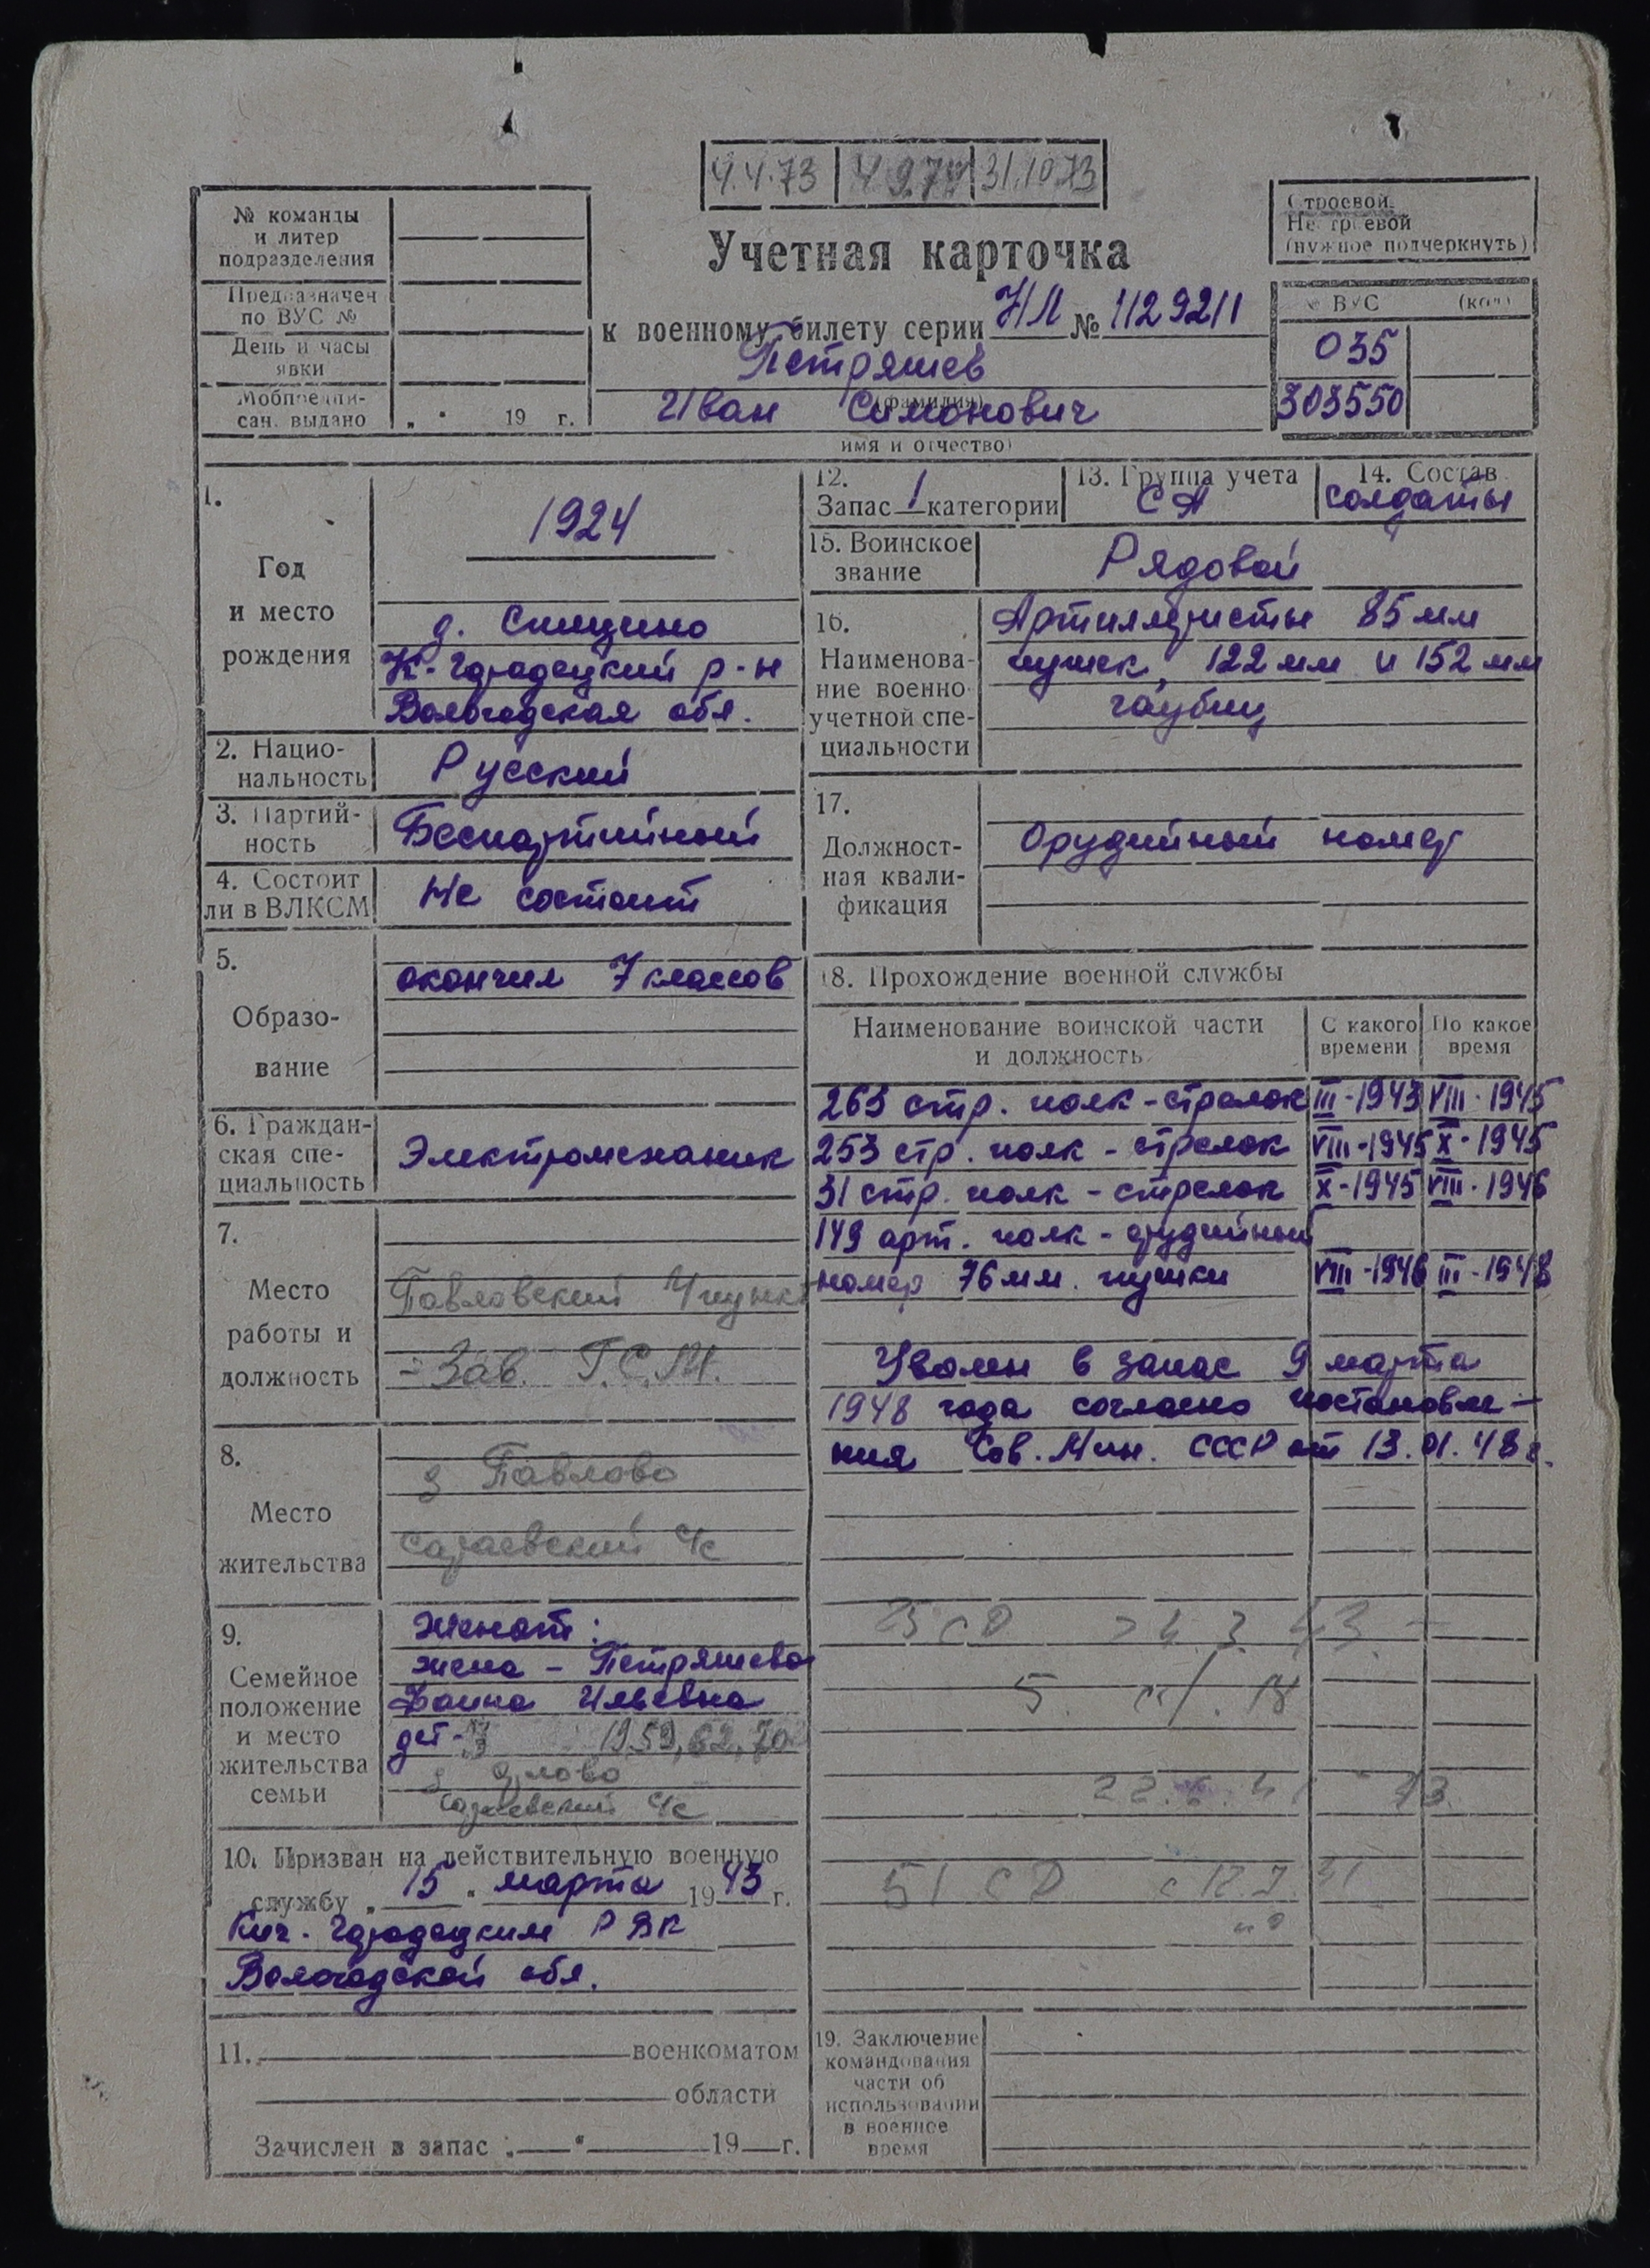 4.4.73 31.10.73
№ команды
и литер
подразделения
Предназначен
по ВУС №
День и часы
явки
Мобпредпи-
сан. выдано „ " 19 г.
Учетная карточка
к военному билету серии НЛ № 1129211
Петряшев
(фамилия)
Иван Симонович
имя и отчество)
Строевой
Нестроевой
(нужное подчеркнуть)
№ ВУС (код)
035
303550
1.
Год
и место
рождения
1924
д.
К-Городецкий р-н
Вологодская обл.
2. Нацио-
нальность
Русский
3. Партий-
ность
Беспартийный
4. Состоит
ли в ВЛКСМ
Не состоит
5.
Образо-
вание
окончил 7 классов
6. Граждан-
ская спе-
циальность
Электромеханик
7.
Место
работы и
должность
Павловский
- Зав. Г.С.М.
8.
Место
жительства
д Павлово
Сараевский с/с
9.
Семейное
положение
и место
жительства
семьи
Женат:
жена - Петряшева
Фаина Ильевна
дет- 1959, 62, 70
Сараевский с/с
10. Призван на действительную военную
службу „ 15 " марта 1943 г.
Кич. Городецким РВК
Вологодской обл.
11. военкоматом
области
Зачислен в запас „ " 19 г.
12.
Запас 1 категории
13. Группа учета
СА
14. Состав
солдаты
15. Воинское
звание
Рядовой
16.
Наименова-
ние военно-
учетной спе-
циальности
Артиллеристы 85 мм
пушек, 122 мм и 152 мм
гаубиц
17.
Должност-
ная квали-
фикация
Орудийный номер
18. Прохождение военной службы
Наименование воинской части
и должность
С какого
времени
По какое
время
263 стр. полк - стрелок III-1943 VIII-1945
253 стр. полк - стрелок VIII-1945 X-1945
31 стр. полк - стрелок X-1945 VIII-1946
149 арт. полк - орудийный
номер 76 мм. пушки VIII-1946 III-1948
Уволен в запас 9 марта
1948 года согласно постановле-
ния Сов. Мин. СССР от 13.01.48 г.
51 СД
19. Заключение
командования
части об
использовании
в военное
время